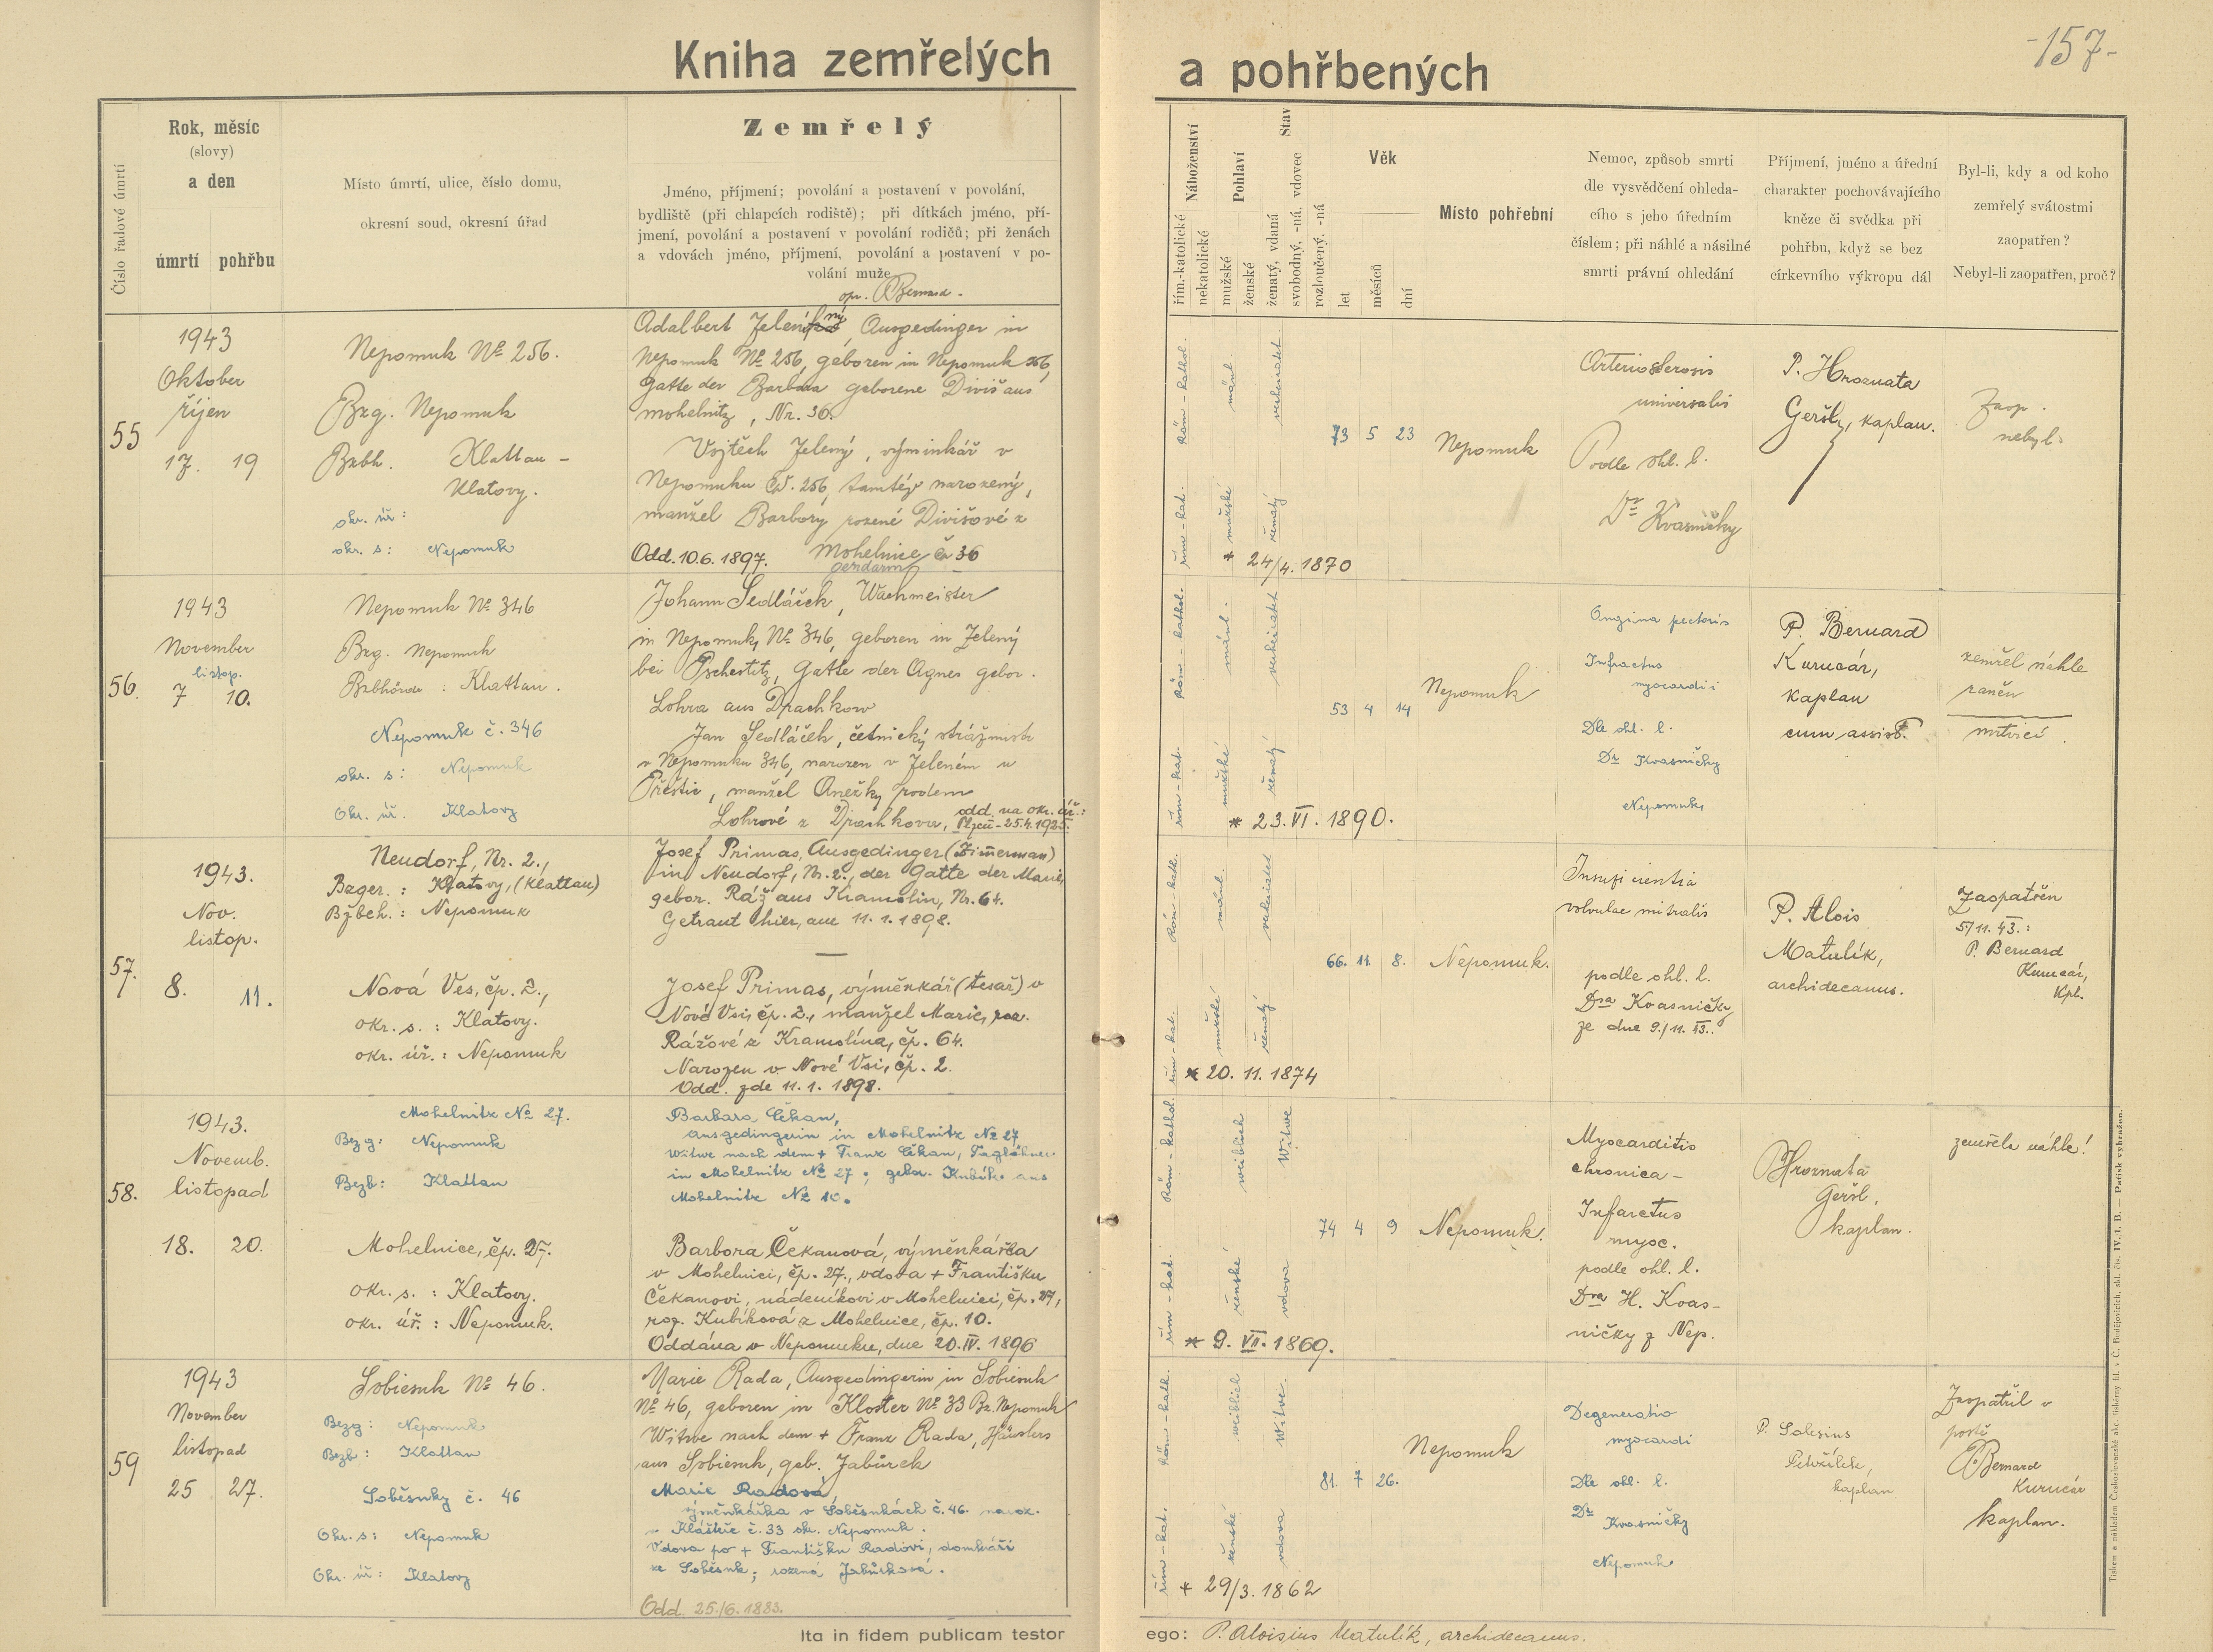 -157-
Kniha zemřelých a pohřbených
Číslo řadové úmrtí
Rok, měsíc
(slovy)
a den
úmrtí pohřbu
Místo úmrtí, ulice, číslo domu,
okresní soud, okresní úřad
Zemřelý
Jméno, příjmení; povolání a postavení v povolání,
bydliště (při chlapcích rodiště); při dítkách jméno, pří-
jmení, povolání a postavení v povolání rodičů; při ženách
a vdovách jméno, příjmení, povolání a postavení v po-
volání muže
Náboženství
řím.-katolické
nekatolické
Pohlaví
mužské
ženské
Stav
ženatý, vdaná
svobodný, -ná, vdovec
rozloučený, -ná
Věk
let
měsíců
dní
Místo pohřební
Nemoc, způsob smrti
dle vysvědčení ohleda-
cího s jeho úředním
číslem; při náhlé a násilné
smrti právní ohledání
Příjmení, jméno a úřední
charakter pochovávajícího
kněze či svědka při
pohřbu, když se bez
církevního výkropu dál
Byl-li, kdy a od koho
zemřelý svátostmi
zaopatřen?
Nebyl-li zaopatřen, proč?
55
1943
Oktober
říjen
17. 19
Nepomuk Nº 256.
Bzg. Nepomuk
Bzbh. Klattau -
Klatovy.
okr. úř:
okr. s: Nepomuk
opr. P Bernard.
Adalbert Jelený, Ausgedinger in
Nepomuk Nº 256, geboren in Nepomuk 256,
Gatte der Barbara geborene Diviš aus
Mohelnitz, Nr. 36.
Vojtěch Jelený, výminkář v
Nepomuku čp. 256, tamtéž narozený,
manžel Barbory rozené Divišové z
Odd. 10.6. 1897. Mohelnice č 36
Röm-kathol.
řím-kat.
männl.
mužské
verheiratet
ženatý
73 5 23
* 24/4. 1870
Nepomuk
Arteriosclerosis
universalis
Podle ohl. l.
Dr Kvasničky
P. Hroznata
Geršl, kaplan.
Zaop.
nebyl.
56.
1943
November
listop.
7 10.
Nepomuk Nº 346
Bzg. Nepomuk
Bzbhörde : Klattau.
Nepomuk č. 346
okr. s: Nepomuk
Okr. úř. Klatovy
gendarm
Johann Sedláček, Wachmeister
in Nepomuk, Nº 346, geboren in Zelený
bei Pschestitz, Gatte der Agnes gebor.
Lohra aus Drachkow
Jan Sedláček, četnický strážmistr
v Nepomuku 346, narozen v Zeleném u
Přeštic, manžel Anežky rodem
Lohrové z Drachkova, odd. na okr. úř.:
Plzeň - 25.4.1925.
Röm-kathol.
řím-kat.
männl.
mužské
verheiratet
ženatý
53 4 14
* 23. VI. 1890.
Nepomuk
Angina pectoris
Infractus
myocardii
Dle ohl. l.
Dr Kvasničky
Nepomuk
P. Bernard
Kurucár,
kaplan
cum assist.
zemřel náhle
raněn
mrtvicí.
57.
1943.
Nov.
listop.
8. 11.
Neudorf, Nr. 2.,
Bzger. : Klatovy, (Klattau)
Bzbeh. : Nepomuk
Nová Ves, čp. 2.,
okr. s. : Klatovy.
okr. úř. : Nepomuk
Josef Primas, Ausgedinger (Zimerman)
in Neudorf, Nr. 2., der Gatte der Marie,
gebor. Ráž aus Kramolin, Nr. 64.
Getraut hier, am 11. 1. 1898.
Josef Primas, výměnkář (tesař) v
Nové Vsi, čp. 2., manžel Marie, roz.
Rážové z Kramolína, čp. 64.
Narozen v Nové Vsi, čp. 2.
Odd. zde 11. 1. 1898.
Röm-kath.
řím-kat.
männl.
mužské
verheiratet
ženatý
66. 11. 8.
* 20. 11. 1874
Nepomuk.
Insuficientia
valvulae mitralis
podle ohl. l.
Dra Kvasničky
ze dne 9./11. 43..
P. Alois
Matulík,
archidecanus.
Zaopatřen
5/11. 43.:
P. Bernard
Kurucár,
kpl.
58.
1943.
Novemb.
listopad
18. 20.
Mohelnitz Nº 27.
Bezg: Nepomuk
Bezb: Klattau
Mohelnice, čp. 27.
okr. s. : Klatovy.
okr. úř. : Nepomuk.
Barbara Čekan,
Ausgedingerin in Mohelnitz Nº 27
Witwe nach dem + Franz Čekan, Taglöhner
in Mohelnitz Nº 27; gebor. Kubík aus
Mohelnitz Nº 10.
Barbora Čekanová, výměnkářka
v Mohelnici, čp. 27., vdova + Františku
Čekanovi, nádeníkovi v Mohelnici, čp. 27,
roz. Kubíková z Mohelnice, čp. 10.
Oddána v Nepomuku, dne 20. IV. 1896
Röm-kathol.
řím-kat.
weiblich
ženské
Witwe
vdova
74 4 9
* 9. VII. 1869.
Nepomuk.
Myocarditis
chronica -
Infarctus
myoc.
podle ohl. l.
Dra H. Kvas-
ničky z Nep.
P Hroznata
Geršl,
kaplan.
zemřela náhle!
59
1943
November
listopad
25 27.
Sobiesuk Nº 46.
Bezg: Nepomuk
Bezb: Klattau
Soběsuky č. 46
Okr. s: Nepomuk
Okr. úř: Klatovy
Marie Rada, Ausgedingerin in Sobiesuk
Nº 46, geboren in Kloster Nº 33 Bz. Nepomuk
Witwe nach dem + Franz Rada, Häuslers
aus Sobiesuk, geb. Jabůrek
Marie Radová,
výměnkářka v Soběsukách č. 46. naroz.
v Klášteře č. 33 okr. Nepomuk.
Vdova po + Františku Radovi, domkáři
ze Soběsuk; rozená Jabůrková.
Odd. 25./6. 1883.
Röm-kath.
řím-kat.
weiblich
ženské
Witwe.
vdova
81. 7 26.
* 29/3. 1862
Nepomuk
Degeneratio
myocardi
Dle ohl. l.
Dr
Kvasničky
Nepomuk
P. Salesius
kaplan
Zaopatřil v
P Bernard
Kurucár
kaplan.
Ita in fidem publicam testor ego: P. Aloisius Matulík, archidecanus.
Tiskem a nákladem Českoslovanské akc. tiskárny fil. v Č. Budějovicích, skl. čís. IV. 1. B. — Patisk vyhražen.